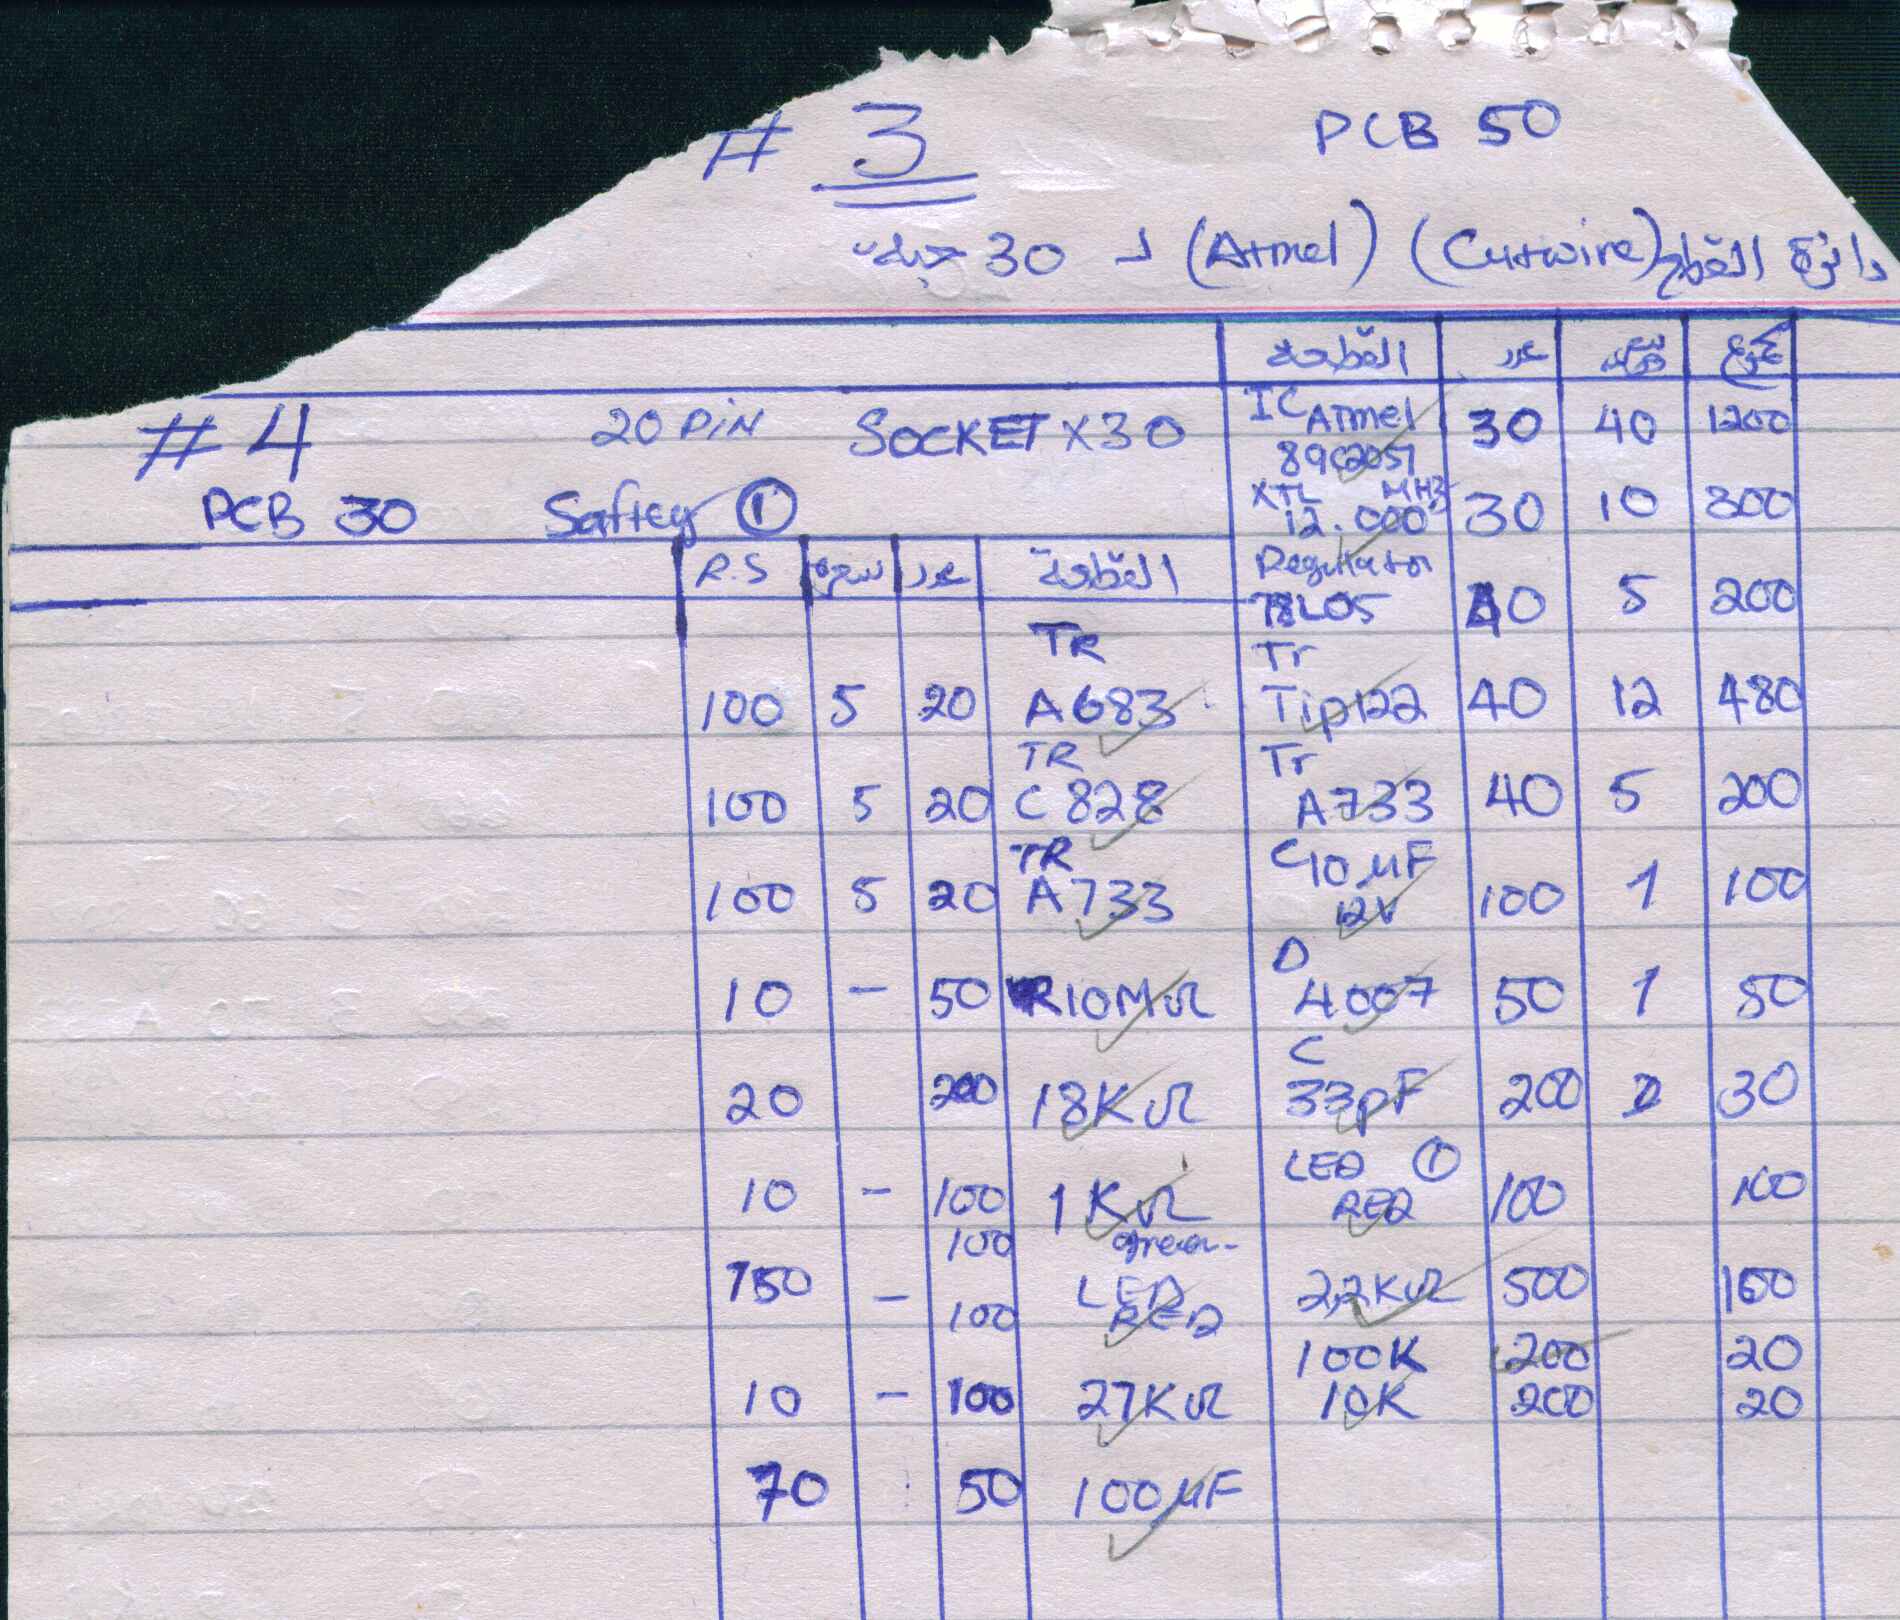 # 3 PCB 50
دائرة القطع (Cutwire) (Atmel) لـ 30
القطعة عدد سعر مجموع
IC Atmel 89C2051 30 40 1200
XTL 12.000 MHz 30 10 300
Regulator 78L05 40 5 200
Tr Tip122 40 12 480
Tr A733 40 5 200
C 10 µF 12V 100 1 100
D 4007 50 1 50
C 33pF 200 30
LED ① RED 100 100
2,2KΩ 500 100
100K 200 20
10K 200 20
# 4 20 PiN SOCKET X 30
PCB 30 Saftey ①
R.S سعر عدد القطعة
100 5 20 TR A683
100 5 20 TR C828
100 5 20 TR A733
10 – 50 R 10MΩ
20 200 18KΩ
10 – 100 1KΩ
100 green
150 – LED
100 RED
10 – 100 27KΩ
70 50 100µF